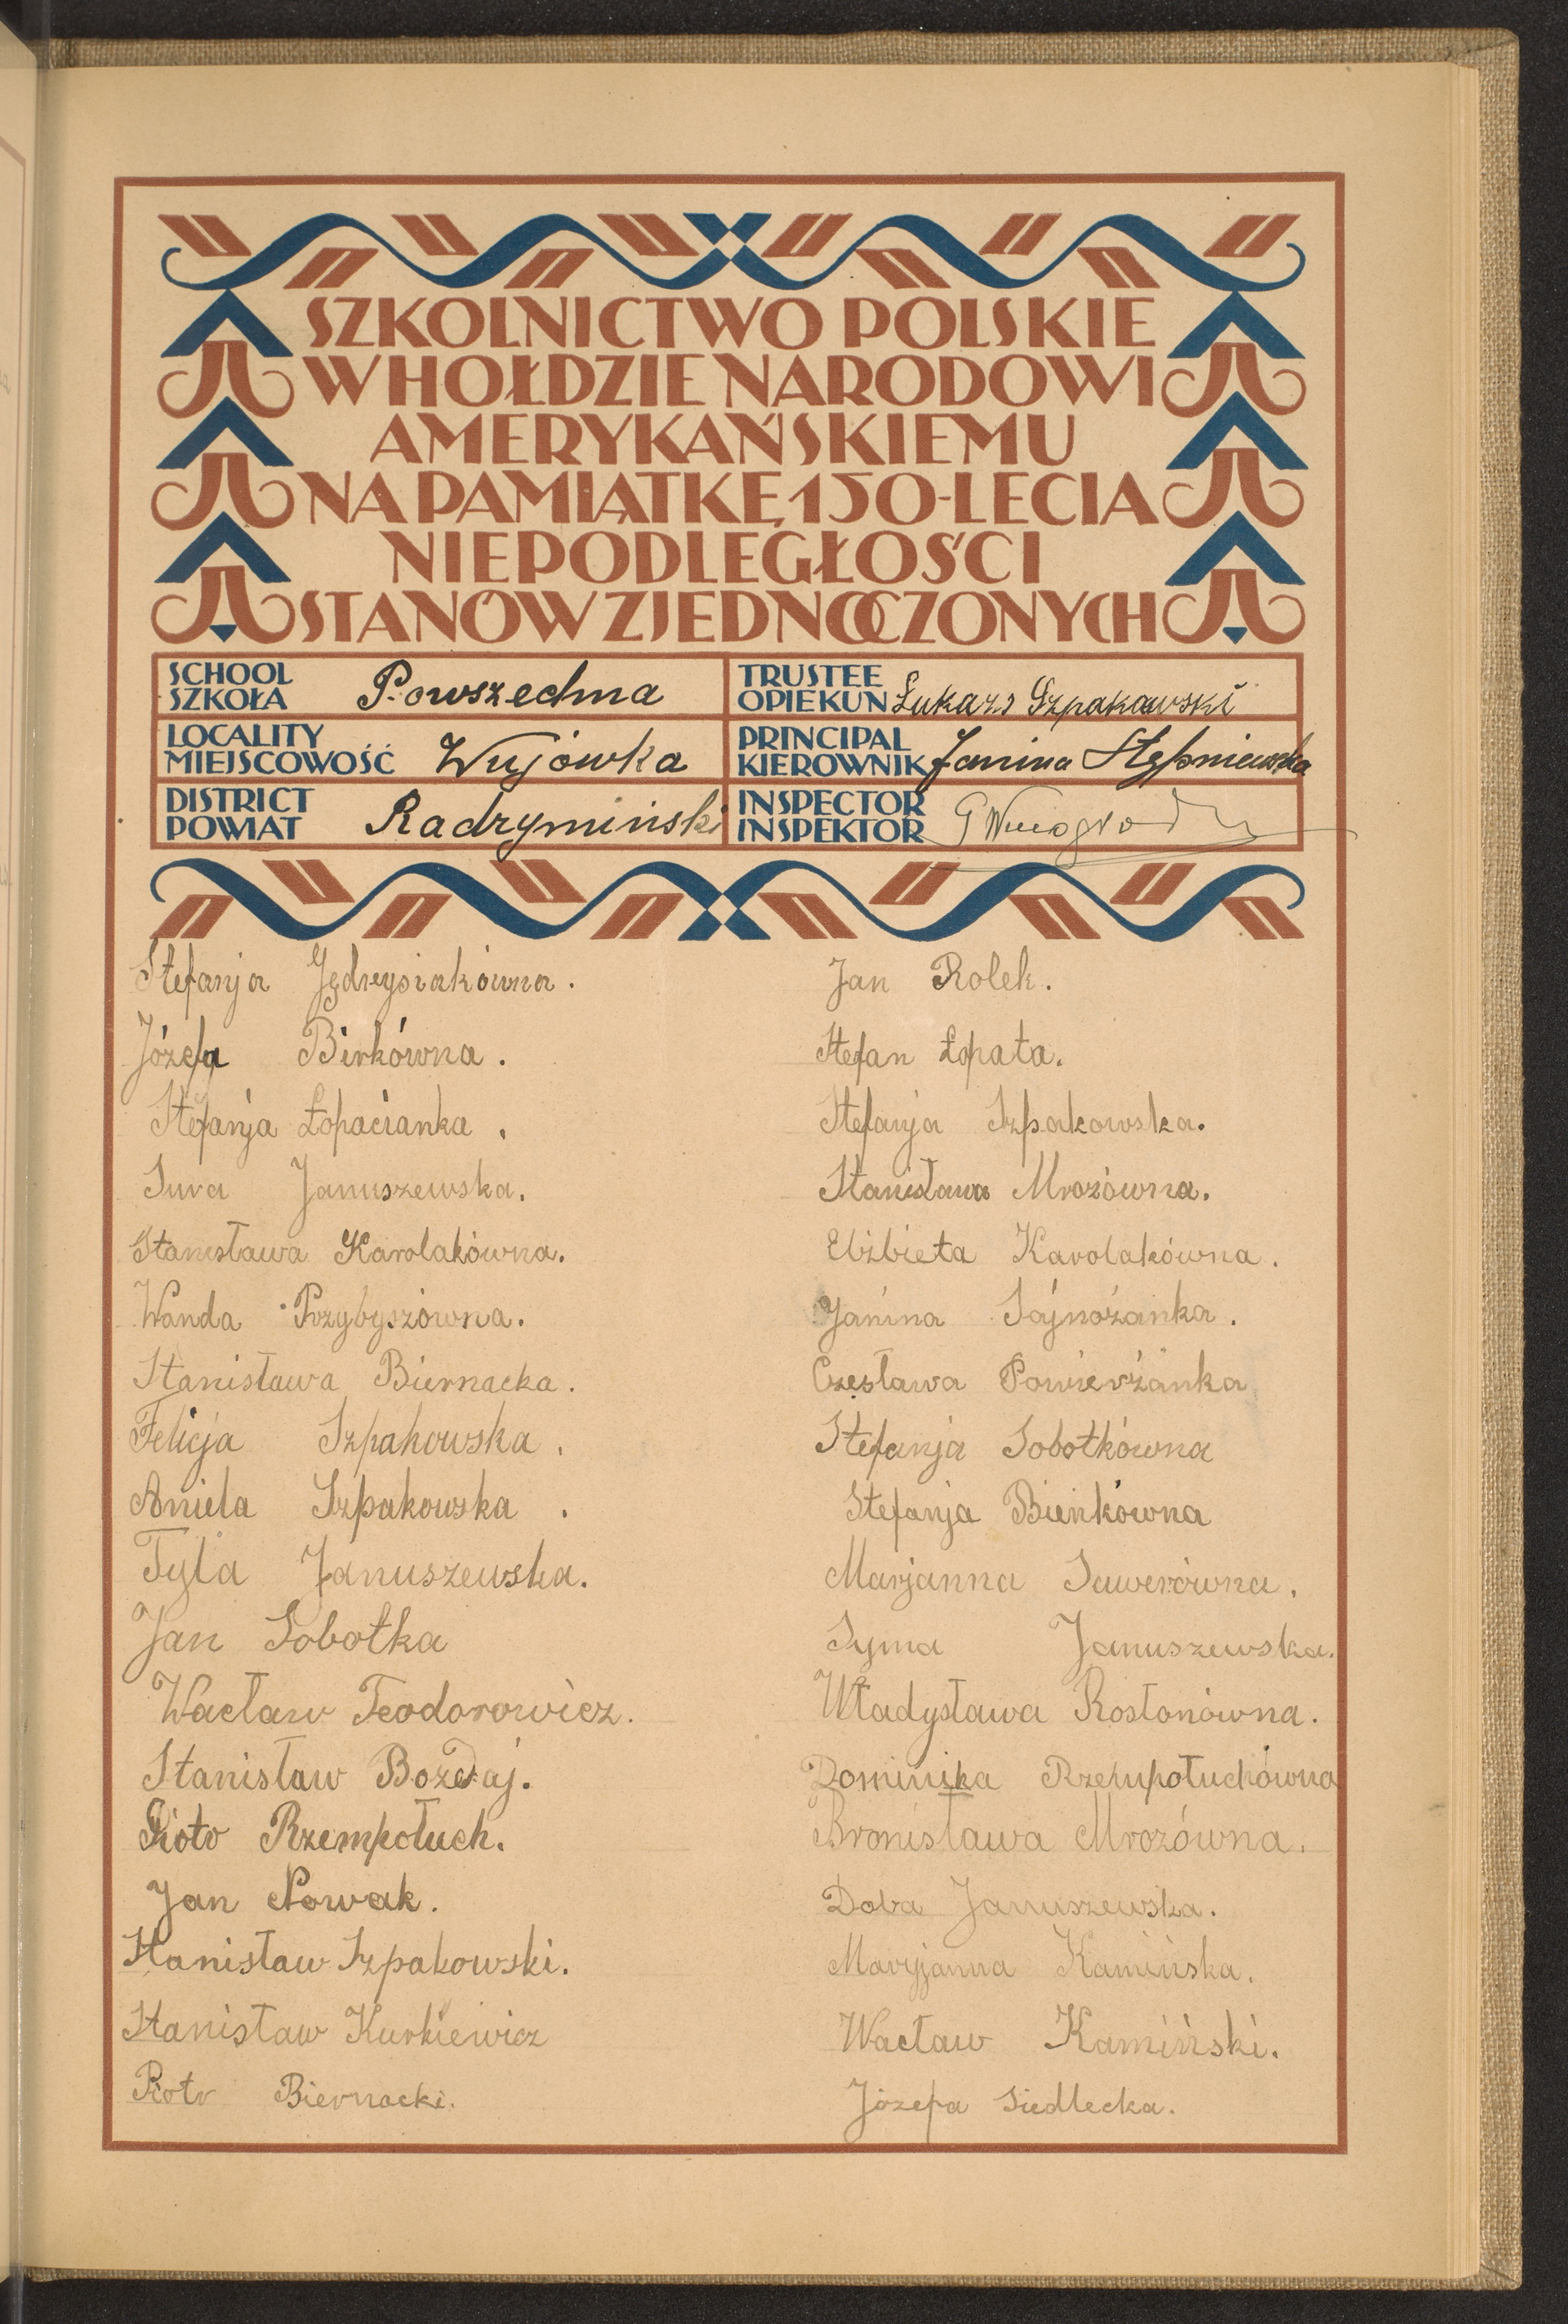 SZKOLNICTWO POLSKIE
W HOŁDZIE NARODOWI
AMERYKAŃSKIEMU
NA PAMIĄTKĘ 150-LECIA
NIEPODLEGŁOŚCI
STANÓW ZJEDNOCZONYCH
SCHOOL
SZKOŁA Powszechna
TRUSTEE
OPIEKUN Łukazs Szpakawski
LOCALITY
MIEJSCOWOŚĆ Wujówka
PRINCIPAL
KIEROWNIK Janina Stępniewska
DISTRICT
POWIAT Radzymiński
INSPECTOR
INSPEKTOR
Stefanja Jędrysiakówna.
Józefa Birkówna.
Stefanja Łopacianka.
Sura Januszewska.
Stanisława Karolakówna.
Wanda Przybyszówna.
Stanisława Biernacka.
Felicja Szpakowska.
Aniela Szpakowska.
Tyla Januszewska.
Jan Sobotka
Wacław Teodorowicz.
Stanisław Bozdaj.
Piotr Rzempołuch.
Jan Nowak.
Stanisław Szpakowski.
Stanisław Kurkiewicz
Piotr Biernacki.
Jan Rolek.
Stefan Łopata.
Stefanja Szpakowska.
Stanisława Mrozówna.
Elżbieta Karolakówna.
Janina Sójnożanka.
Czesława Powierżanka
Stefanja Sobotkówna
Stefanja Bieńkówna
Marjanna Suwerówna.
Syma Januszewska.
Władysława Rosłonówna.
Dominika Rzempołuchówna
Bronisława Mrozówna.
Doba Januszewska.
Maryjanna Kamińska.
Wacław Kamiński.
Józefa Siedlecka.